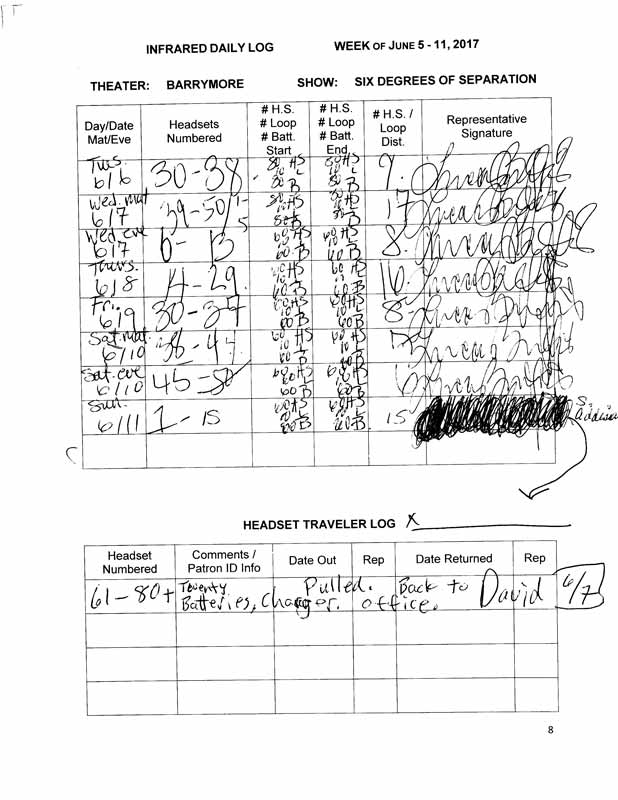 INFRARED DAILY LOG WEEK OF JUNE 5 - 11, 2017
THEATER: BARRYMORE SHOW: SIX DEGREES OF SEPARATION
Day/Date Mat/Eve
Headsets Numbered
# H.S. # Loop # Batt. Start
# H.S. # Loop # Batt. End
# H.S. / Loop Dist.
Representative Signature
Tues. 6/6 30-38 80 HS 10 L 80 B 80 HS 10 L 80 B 9
Wed. mat 6/7 39-50/1-5 17
Wed eve 6/7 6-13 8
Thurs. 6/8 14-29 16
Fri. 6/9 30-37 60 HS 10 L 60 B 60 HS 10 L 60 B 8
Sat. mat. 6/10 60 HS 10 L 60 B 60 HS 10 L 60 B
Sat. eve 6/10 45-50 60 B 60 B
Sun. 6/11 1-15 60 HS 60 B 60 HS 60 B 15 S.
HEADSET TRAVELER LOG X
Headset Numbered
Comments / Patron ID Info
Date Out
Rep
Date Returned
Rep
61-80+ Twenty Batteries, Charger. Pulled. Back to David office. 6/7
8